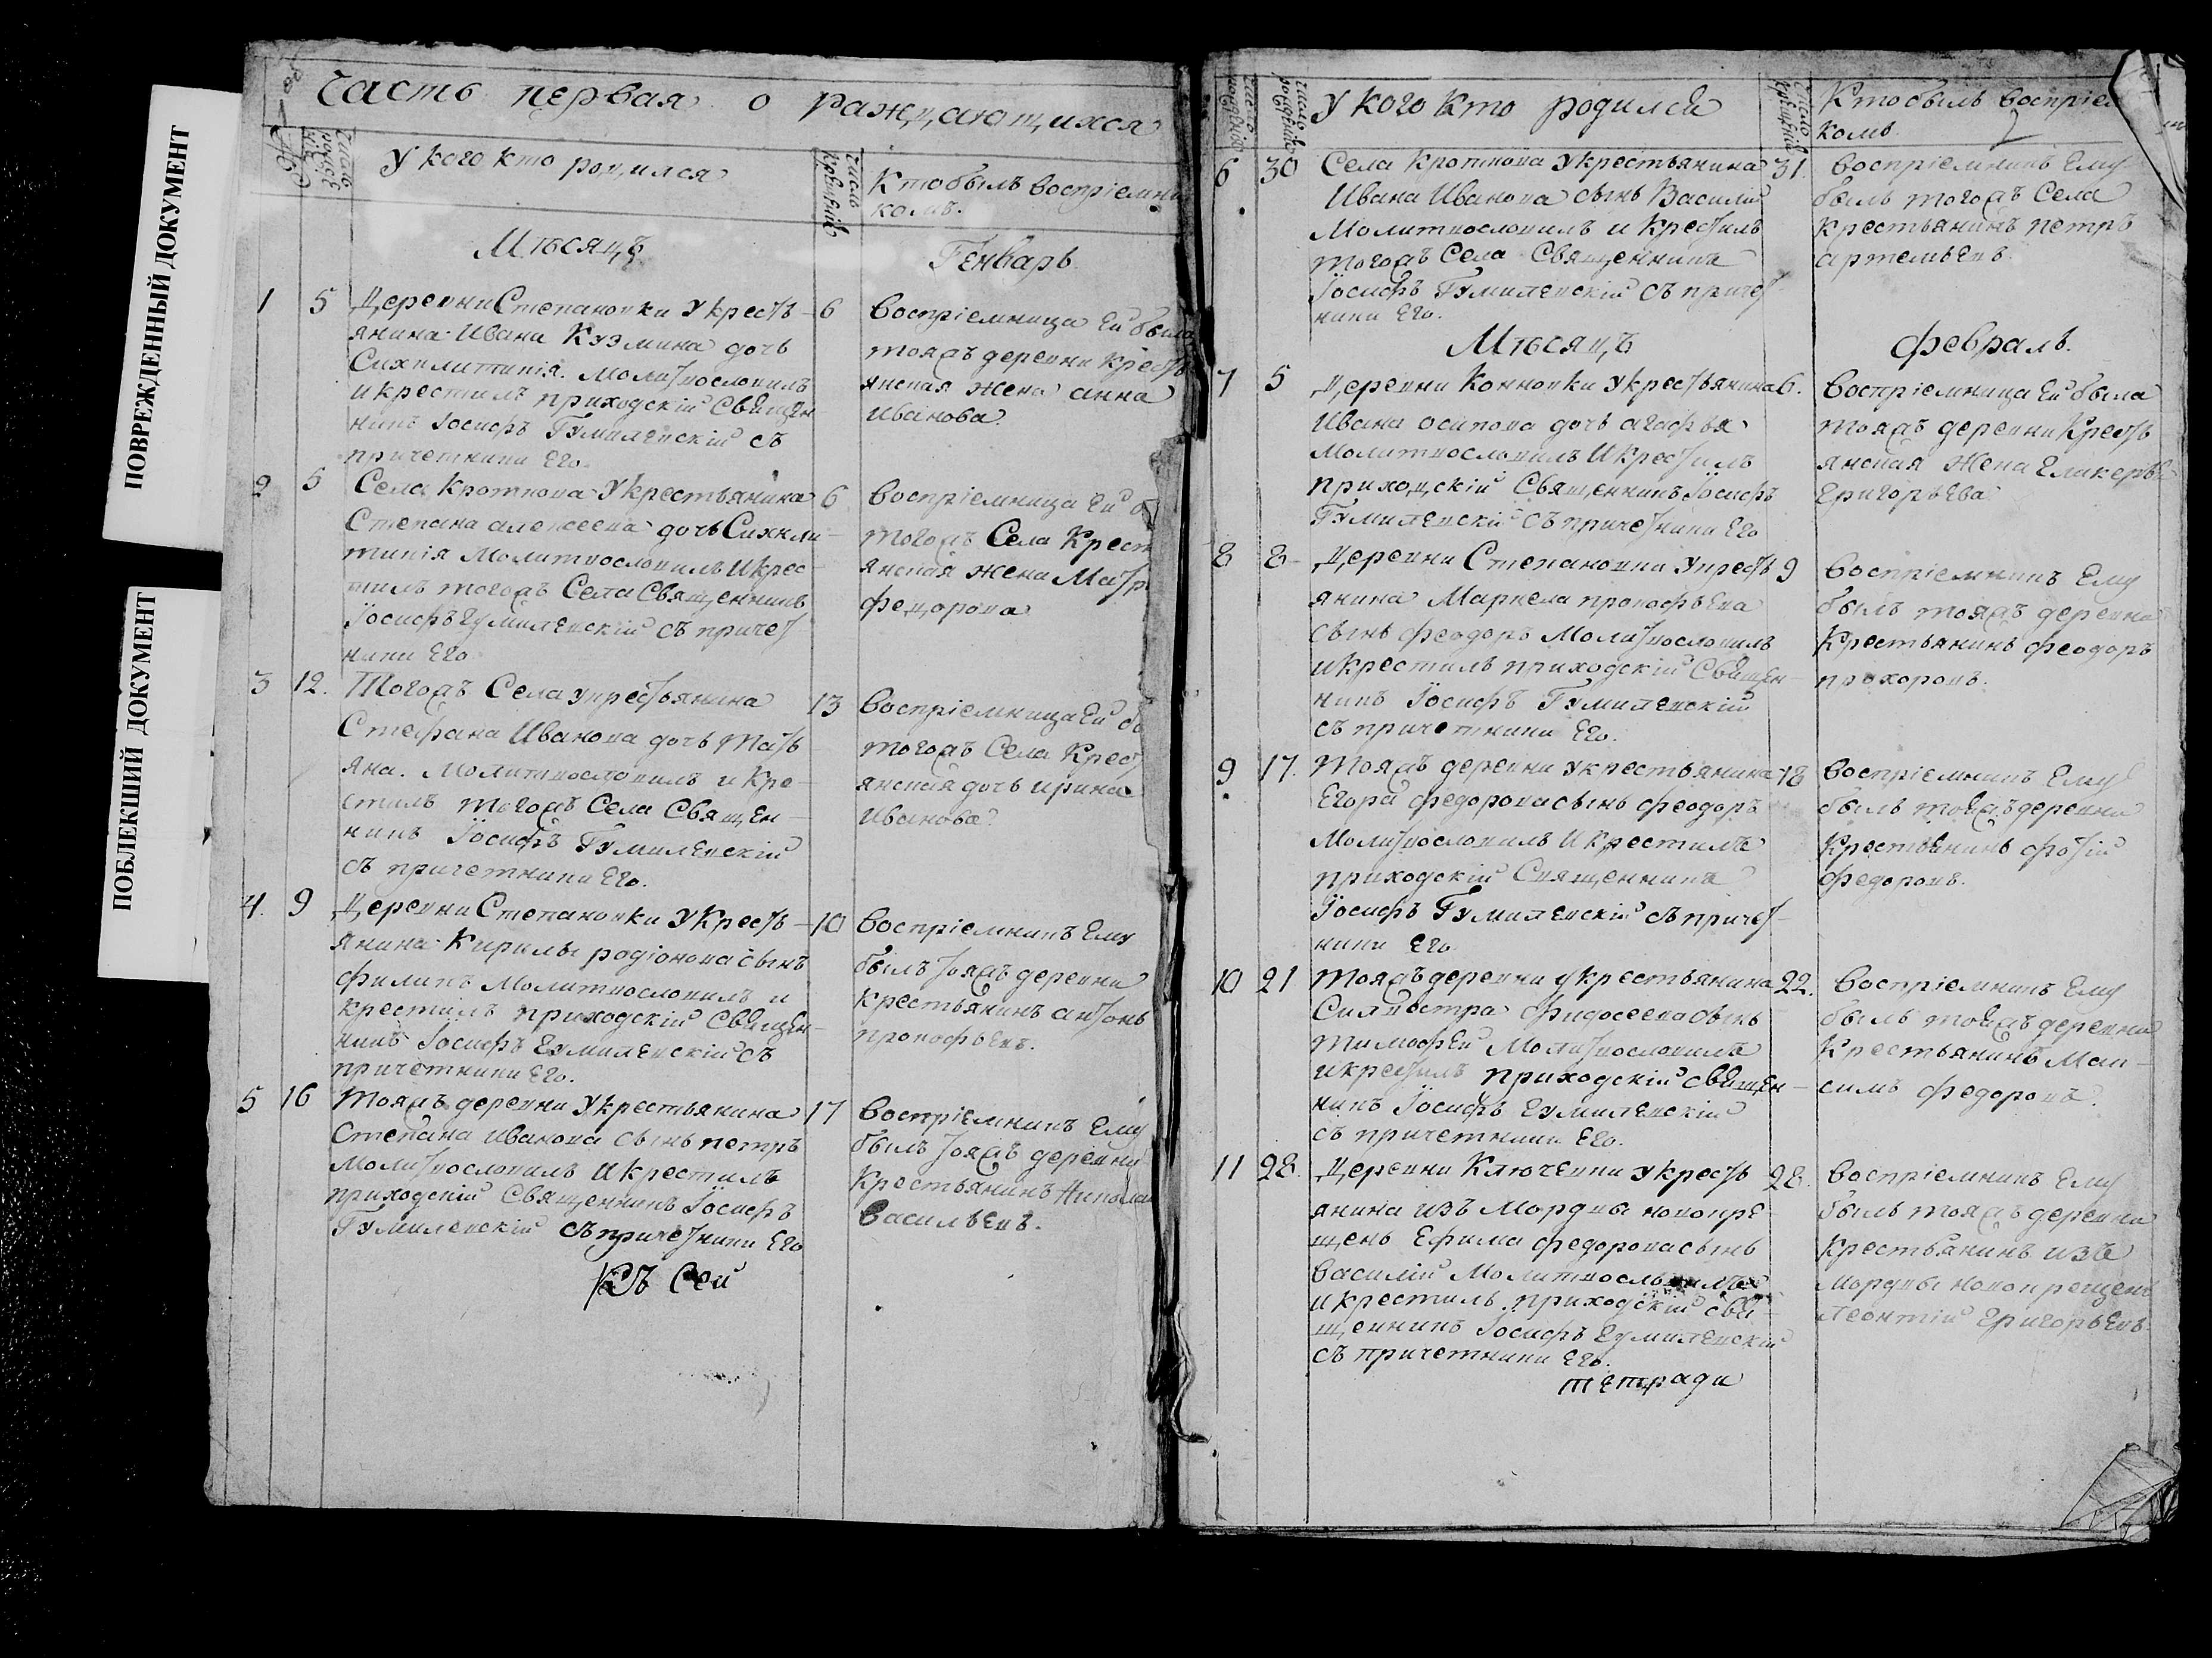 ПОВРЕЖДЕННЫЙ ДОКУМЕНТ
ПОБЛЕКШИЙ ДОКУМЕНТ
часть первая о раждающихся
У кого кто родился
Кто былъ воспріемни
комъ.
число крещенія
Мѣсяцъ
Генварь
1 5 Деревни Степановки у кресть-
янина Ивана Кузмина дочь
Синклитикія. молитвословилъ
и крестилъ приходскій священ
никъ Іосифъ Гумилевскій съ
причетники его.
6 воспріемница ей была
тояжъ деревни кресть
янская жена анна
Иванова.
2 5 Села кроткова у крестьянина
Степана алексеева дочь Синкли-
тикія молитвословилъ и крес-
тилъ тогожъ Села Священникъ
Іосифъ Гумилевскій съ причет
ники его
6 воспріемница ей б
тогожъ Села Крест
янская жена Матр
федорова
3 12. Тогожъ Села у крестьянина
Стефана Иванова дочь Тать
яна. молитвословилъ и кре-
стилъ тогожъ Села Священ-
никъ Іосифъ Гумилевскій
съ причетники его.
13 воспріемница ей бы
тогожъ Села Крест
янская дочь ирина
Иванова.
4. 9 Деревни Степановки у кресть-
янина Кирилы родіонова сынъ
филипъ молитвословилъ и
крестилъ приходскій священ-
никъ Іосифъ Гумилевскій съ
причетники его.
10 воспріемникъ ему
былъ тояжъ деревни
крестьянинъ антонъ
прокофьевъ.
5 16 Тояжъ деревни у крестьянина
Степана иванова сынъ петръ
молитвословилъ и крестилъ
приходскій Священникъ Іосифъ
Гумилевскій съ причетники его
17 воспріемникъ ему
былъ тояжъ деревни
крестьянинъ Никола
васильевъ.
Къ сей
У кого кто родился
Кто былъ воспріем
комъ.
2
6 30 Села кроткова у крестьянина
Ивана Иванова сынъ Василій
молитвословилъ и крестилъ
тогожъ Села Священникъ
Іосифъ Гумилевскій съ причет-
ники его.
31. воспріемникъ ему
былъ тогожъ Села
крестьянинъ петръ
артемьевъ.
Мѣсяцъ
февраль.
7 5 Деревни Конновки у крестьянина
Ивана осипова дочь агафья
молитвословилъ и крестилъ
приходскій Священникъ Іосифъ
Гумилевскій съ причетники его
6. воспріемница ей была
тояжъ деревни кресть
янская жена гликерья
григорьева
8 8 Деревни Степановки у кресть
янина Маркела прокофьева
сынъ феодоръ молитвословилъ
и крестилъ приходскій священ-
никъ Іосифъ Гумилевскій
съ причетники его.
9 воспріемникъ ему
былъ тояжъ деревни
крестьянинъ феодоръ
прохоровъ.
9 17. Тояжъ деревни у крестьянина
Егора федорова сынъ феодоръ
молитвословилъ и крестилъ
приходскій Священникъ
Іосифъ Гумилевскій съ причет-
ники его
18 воспріемникъ ему
былъ тояжъ деревни
крестьянинъ фотій
федоровъ.
10 21 тояжъ деревни у крестьянина
Силвестра фидосеева сынъ
тимофей молитвословилъ
и крестилъ приходскій священ-
никъ Іосифъ Гумилевскій
съ причетники его.
22. воспріемникъ ему
былъ тояжъ деревни
крестьянинъ Мак-
симъ федоровъ.
11 28. Деревни Ключевки у кресть
янина изъ Мордвы новокре-
щенъ Ефима федорова сынъ
василій молитвословилъ
и крестилъ приходскій свя-
щенникъ Іосифъ Гумилевскій
съ причетники его.
28. воспріемникъ ему
былъ тояжъ деревни
крестьянинъ изъ
мордвы новокрещенъ
леонтій григорьевъ.
тетради